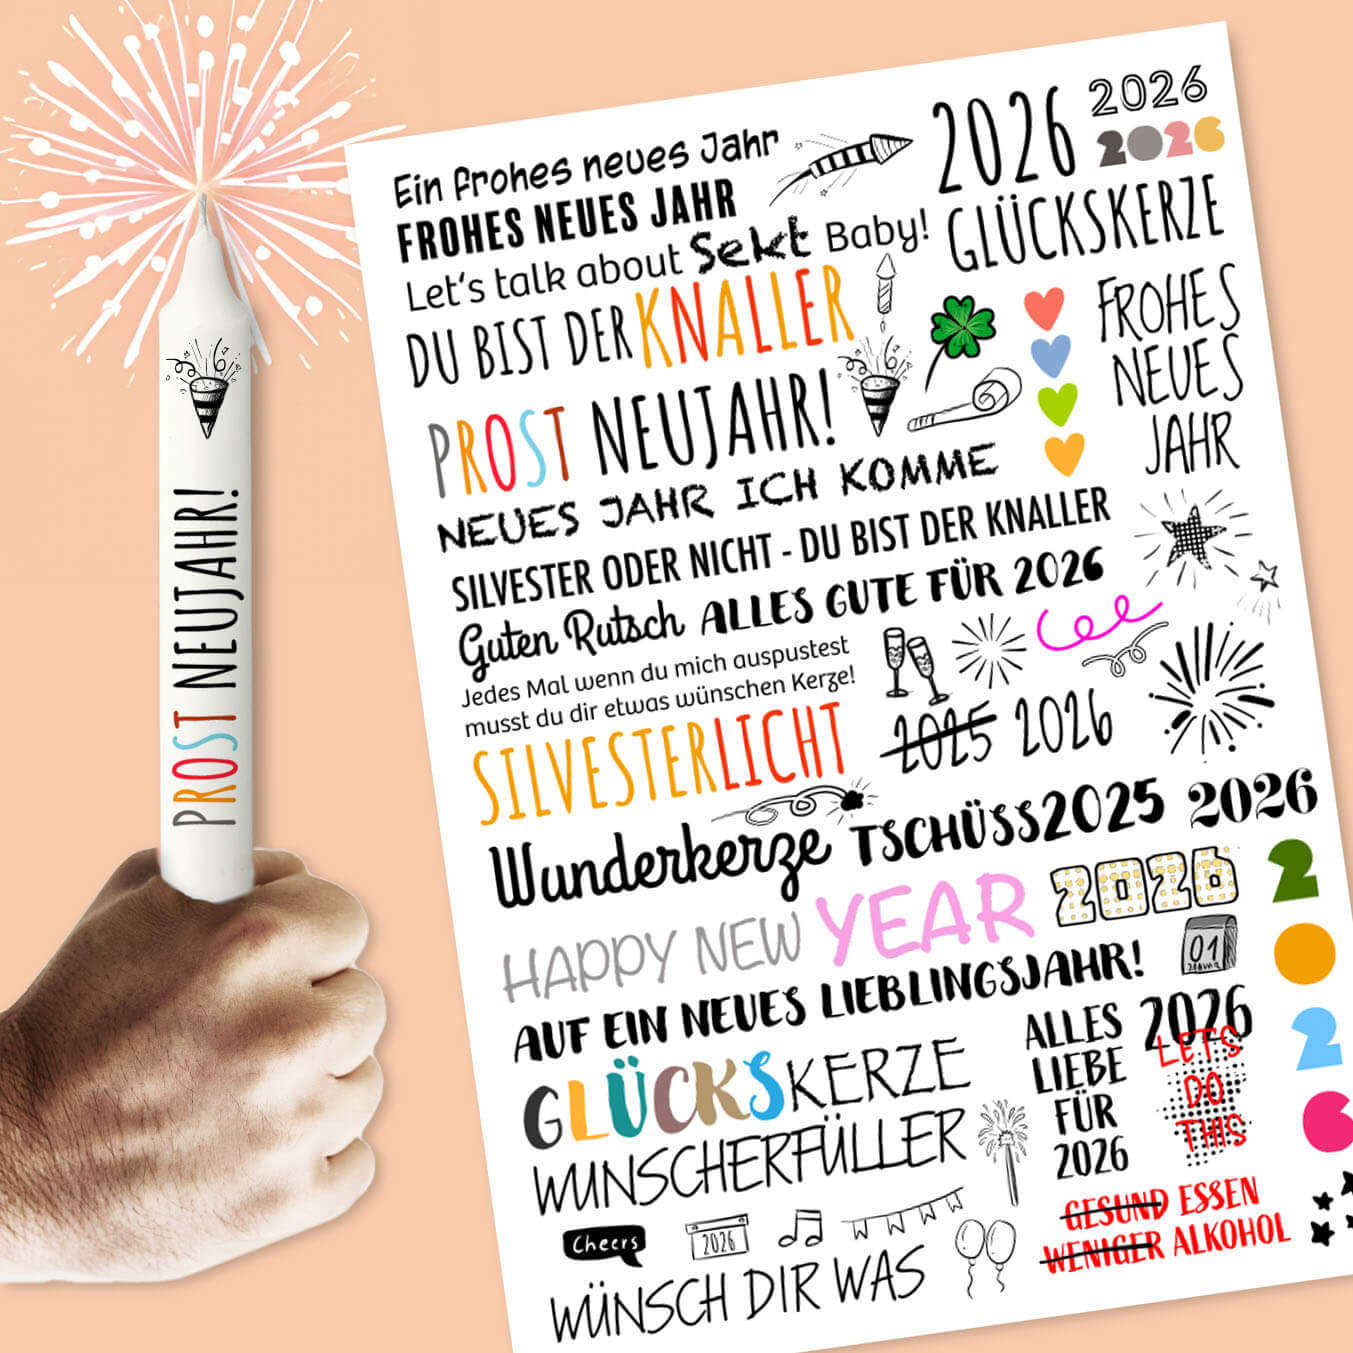 PROST NEUJAHR!
Ein frohes neues Jahr
FROHES NEUES JAHR
Let's talk about Sekt Baby!
DU BIST DER KNALLER
2026
2026
2026
GLÜCKSKERZE
FROHES
NEUES
JAHR
PROST NEUJAHR!
NEUES JAHR ICH KOMME
SILVESTER ODER NICHT - DU BIST DER KNALLER
Guten Rutsch
ALLES GUTE FÜR 2026
Jedes Mal wenn du mich auspustest
musst du dir etwas wünschen Kerze!
SILVESTERLICHT
2025 2026
Wunderkerze
TSCHÜSS2025
2026
HAPPY NEW YEAR
2026
2026
01
JANUAR
AUF EIN NEUES LIEBLINGSJAHR!
GLÜCKSKERZE
ALLES
LIEBE
FÜR
2026
2026
LETS
DO
THIS
WUNSCHERFÜLLER
Cheers
2026
GESUND ESSEN
WENIGER ALKOHOL
WÜNSCH DIR WAS